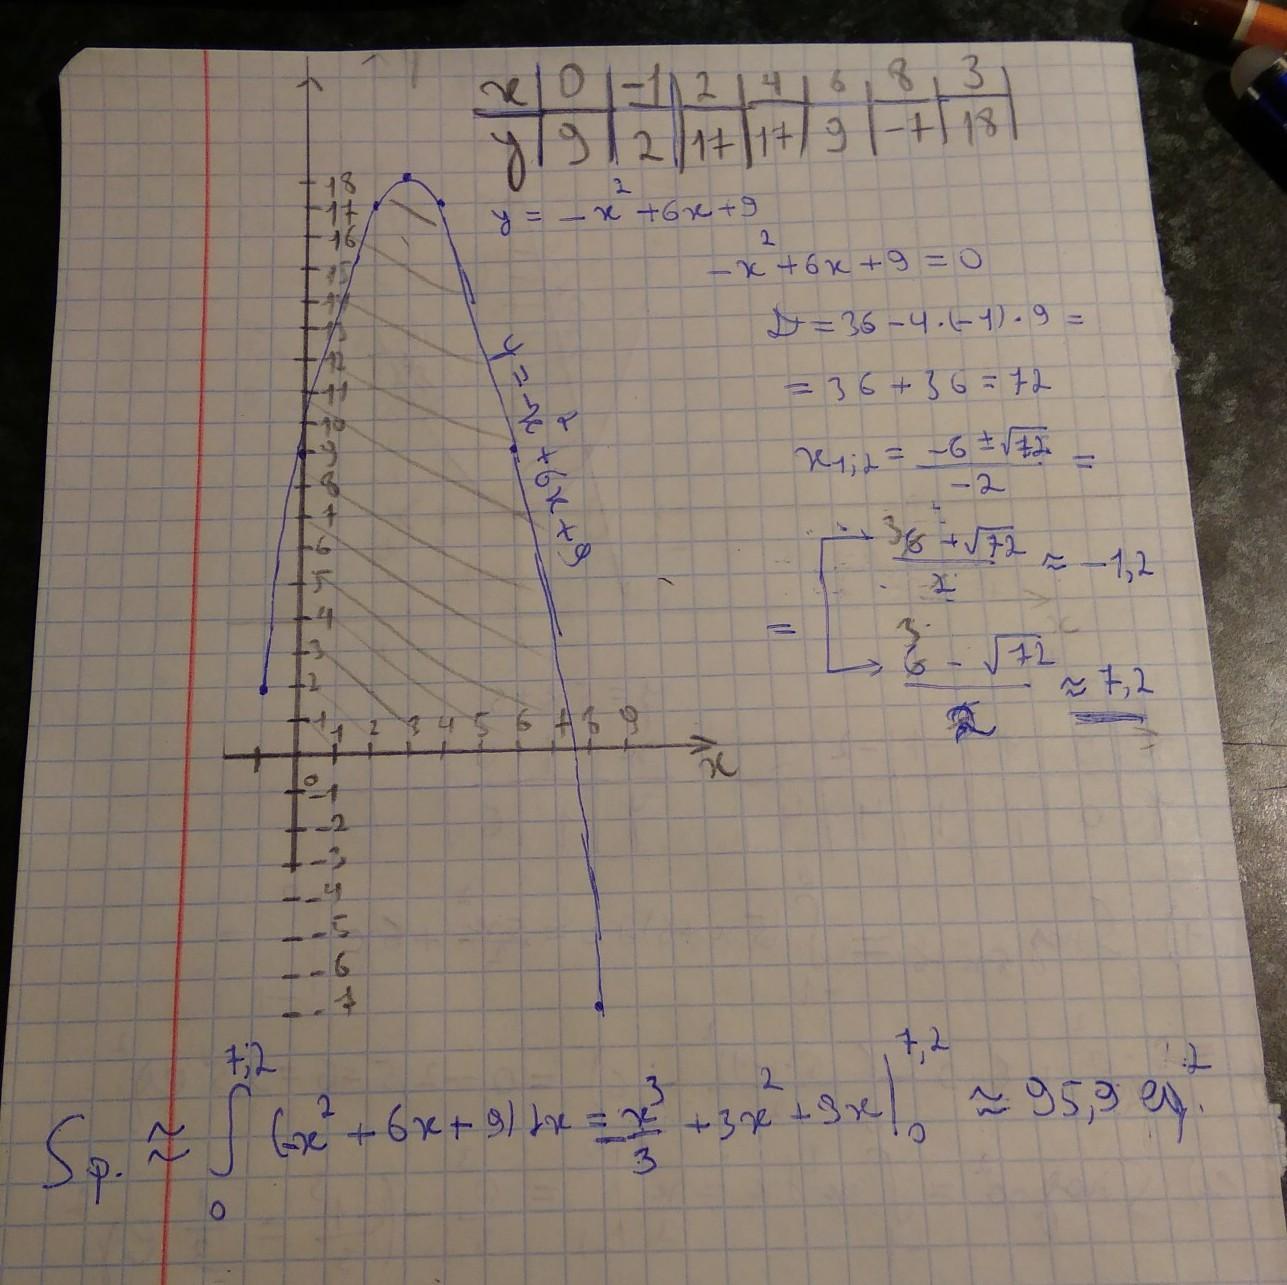 x | 0 | -1 | 2 | 4 | 6 | 8 | 3
y | 9 | 2 | 17 | 17 | 9 | -7 | 18
y = -x² + 6x + 9
-x² + 6x + 9 = 0
D = 36 - 4·(-1)·9 =
= 36 + 36 = 72
x₁;₂ = (-6 ± √72)/(-2) =
= (6 + √72)/2 ≈ -1,2
(6 - √72)/2 ≈ 7,2
18
17
16
15
12
11
10
9
8
7
6
5
4
3
2
1
1 2 3 4 5 6 7 8 9
x
0
-1
-2
-3
-4
-5
-6
-7
y = -x² + 6x + 9
Sф. ≈ ∫₀^7,2 (-x² + 6x + 9) dx = -x³/3 + 3x² + 9x |₀^7,2 ≈ 95,9 ед.²